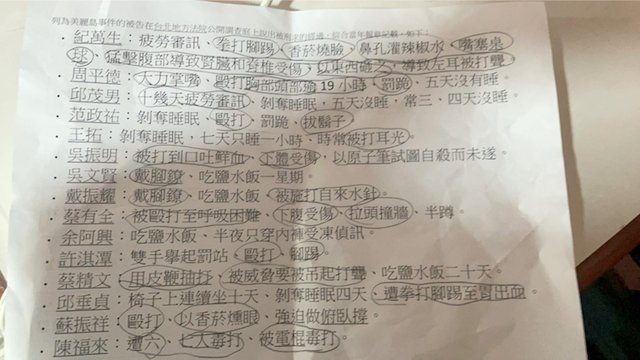 列為美麗島事件的被告在台北地方法院公開調查庭上說出被刑求的經過,綜合當年報章記載,如下:
· 紀萬生:疲勞審訊、拳打腳踢、香菸燒臉、鼻孔灌辣椒水、嘴塞桌
球、猛擊腹部導致腎臟和脊椎受傷、以東西砸之、導致左耳被打聾。
· 周平德:大力掌嘴、毆打胸部頭部逾 19 小時、罰跪、五天沒有睡。
· 邱茂男:十幾天疲勞審訊、剝奪睡眠,五天沒睡,常三、四天沒睡。
· 范政祐:剝奪睡眠、毆打、罰跪、拔鬍子。
· 王拓:剝奪睡眠,七天只睡一小時、時常被打耳光。
· 吳振明:被打到口吐鮮血、下體受傷,以原子筆試圖自殺而未遂。
· 吳文賢:戴腳鐐、吃鹽水飯一星期。
· 戴振耀:戴腳鐐、吃鹽水飯、被施打自來水針。
· 蔡有全:被毆打至呼吸困難、下腹受傷、拉頭撞牆、半蹲。
· 余阿興:吃鹽水飯、半夜只穿內褲受凍偵訊。
· 許淇潭:雙手舉起罰站、毆打、腳踢。
· 蔡精文:用皮鞭抽打、被威脅要被吊起打聾、吃鹽水飯二十天。
· 邱垂貞:椅子上連續坐十天、剝奪睡眠四天、遭拳打腳踢至胃出血。
· 蘇振祥:毆打、以香菸燻眼、強迫做俯臥撐。
· 陳福來:遭六、七人毒打、被電棍毒打。